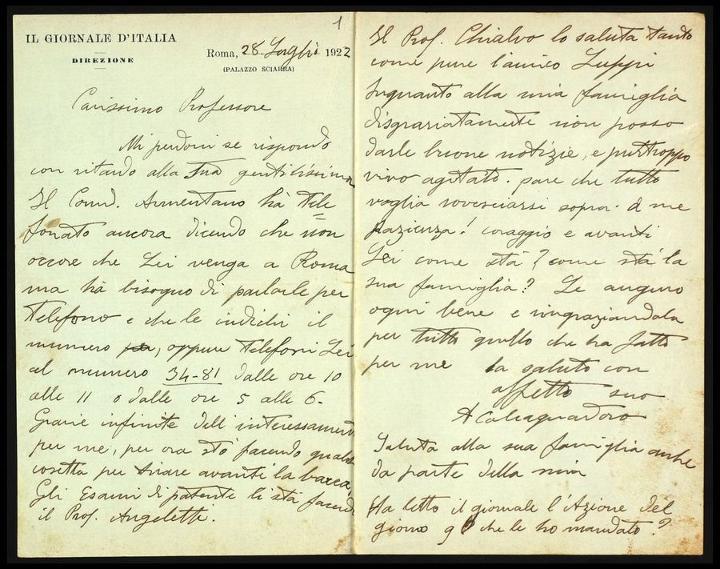 1
IL GIORNALE D'ITALIA
DIREZIONE
Roma, 28 Luglio 1922
(PALAZZO SCIARRA)
Carissimo Professore
Mi perdoni se rispondo
con ritardo alla sua gentilissima
Il Comd. Armentano hà tele
fonato ancora dicendo che non
occore che Lei venga a Roma
ma hà bisogno di parlarle per
telefono e che le indichi il
numero oppure telefoni Lei
al numero 34-81 dalle ore 10
alle 11 o dalle ore 5 alle 6-
Grazie infinite dell'interessamento
per me, per ora stò facendo qualche
cosetta per tirare avanti la barca,
Gli Esami di patente li stà facendo
il Prof. Angeletti.
Il Prof. Chialvo lo saluta tanto
come pure l'amico Luppi
Inquanto alla mia famiglia
disgraziatamente non posso
darle buone notizie, e purtroppo
vivo agitato. pare che tutto
voglia rovesciarsi sopra di me
pazienza! coraggio e avanti
Lei come stà? come stà la
sua famiglia? Le auguro
ogni bene e ringraziandola
per tutto quello che ha fatto
per me la saluto con
affetto suo
A Calcagnadoro
Saluta alla sua famiglia anche
da parte della mia
Ha letto il giornale l'Azione del
giorno 9 che le ho mandato?